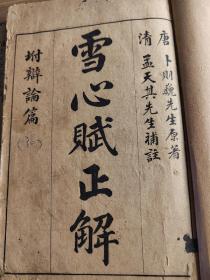 唐 卜則巍先生原著
清 孟天其先生補註
雪心賦正解
坿辯論篇